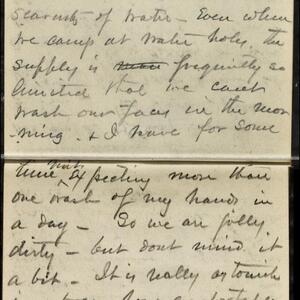 scarcity of water - Even when
we camp at water holes, the
supply is never frequently so
limited that we can't
wash our faces in the mor
ning. & I have for some
time not expecting more than
one wash of my hands in
a day - So we are jolly
dirty - but don't mind it
a bit - It is really as tough